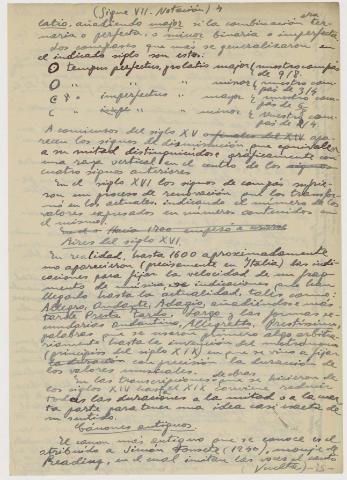 (Sigue VII. Notación) 4
latio, añadiendo major si la combinación era ter-
naria o perfecta, o minor binaria o imperfecta.
Los compases que más se generalizaron en
el indicado siglo son estos:
O tempus perfectus, prolatio major (nuestro compás
de 9/8.
O " " " minor (nuestro com-
pás de 3/4
C " imperfectus " major (nuestro com-
pás de
C " " " minor (Nuestro com-
pás de 2/4
A comienzos del siglo XV o finales del XIV apa-
recen los signos de disminución que equivalían
a su mitad distinguiéndose gráficamente con
una raya vertical en el centro de los signos
cuatro signos anteriores
En el siglo XVI los signos de compás sufrie-
ron un proceso de renovación que los transfor-
mó en los actuales, indicando el número de los
valores expresados en número contenidos en
el mismo.
Hacia 1700 empezó a
del siglo XVI.
En realidad, hasta 1600 aproximadamente
no aparecieron (precisamente en Italia) las indi-
caciones para fijar la velocidad de un frag-
mento de música, indicaciones que han
llegado hasta la actualidad, tales como:
Allegro, Andante, Adagio, añadiéndose más
tarde Presto, Tardo, Largo y las formas se-
cundarias Andantino, Allegretto, Prestissimo,
palabras que se usaron siempre algo arbitra-
riamente hasta la invención del metrónomo
(principios del siglo XIX) en que vino a fijar
la duración con precisión la duración de
los valores musicales.
En las transcripciones que se hicieron de obras
los siglo XV hasta el XIX conviene reducir
todas las duraciones a la mitad o a la cuar-
ta parte para tener una idea casi exacta de
su sentido.
Cánones antiguos
El canon más antiguo que se conoce es el
atribuido a Simón Fornsete (1240), monje de
Reading, en el cual imitan las voces el canto
(Vuelta) - 25 -